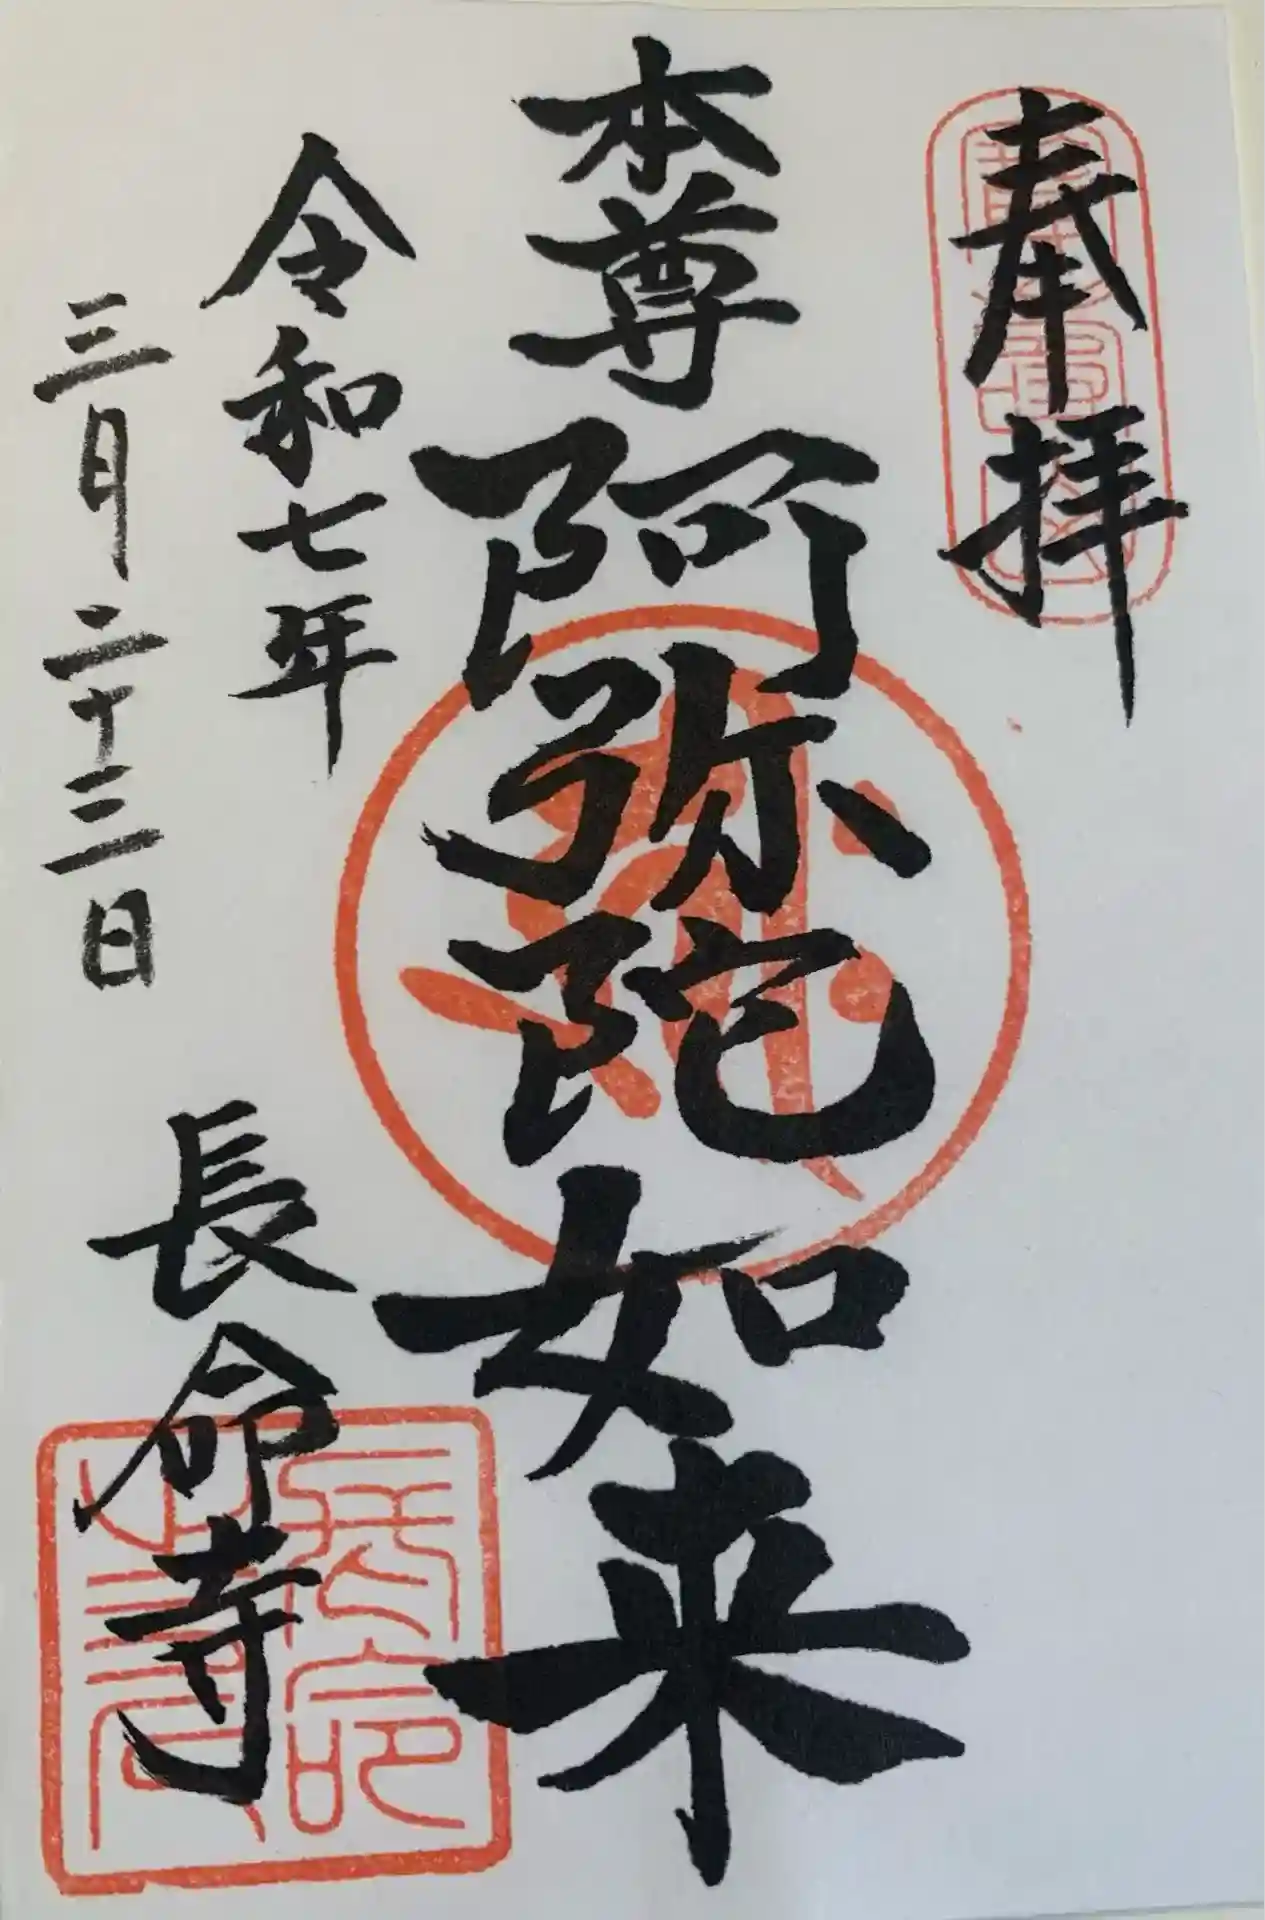 奉拝
本尊 阿弥陀如来
令和七年
三月二十三日
長命寺